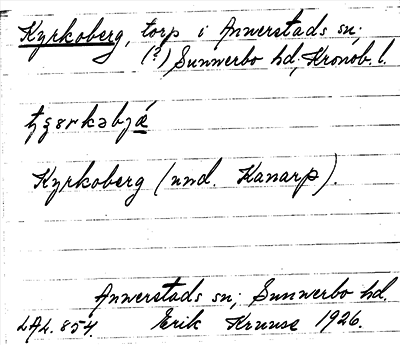 Kyrkoberg, torp i Annerstads sn,
(?) Sunnerbo hd, Kronob. l.
Kyrkoberg (und. Kanarp).
Annerstads sn; Sunnerbo hd.
LAL. 854. Erik Kruuse 1926.